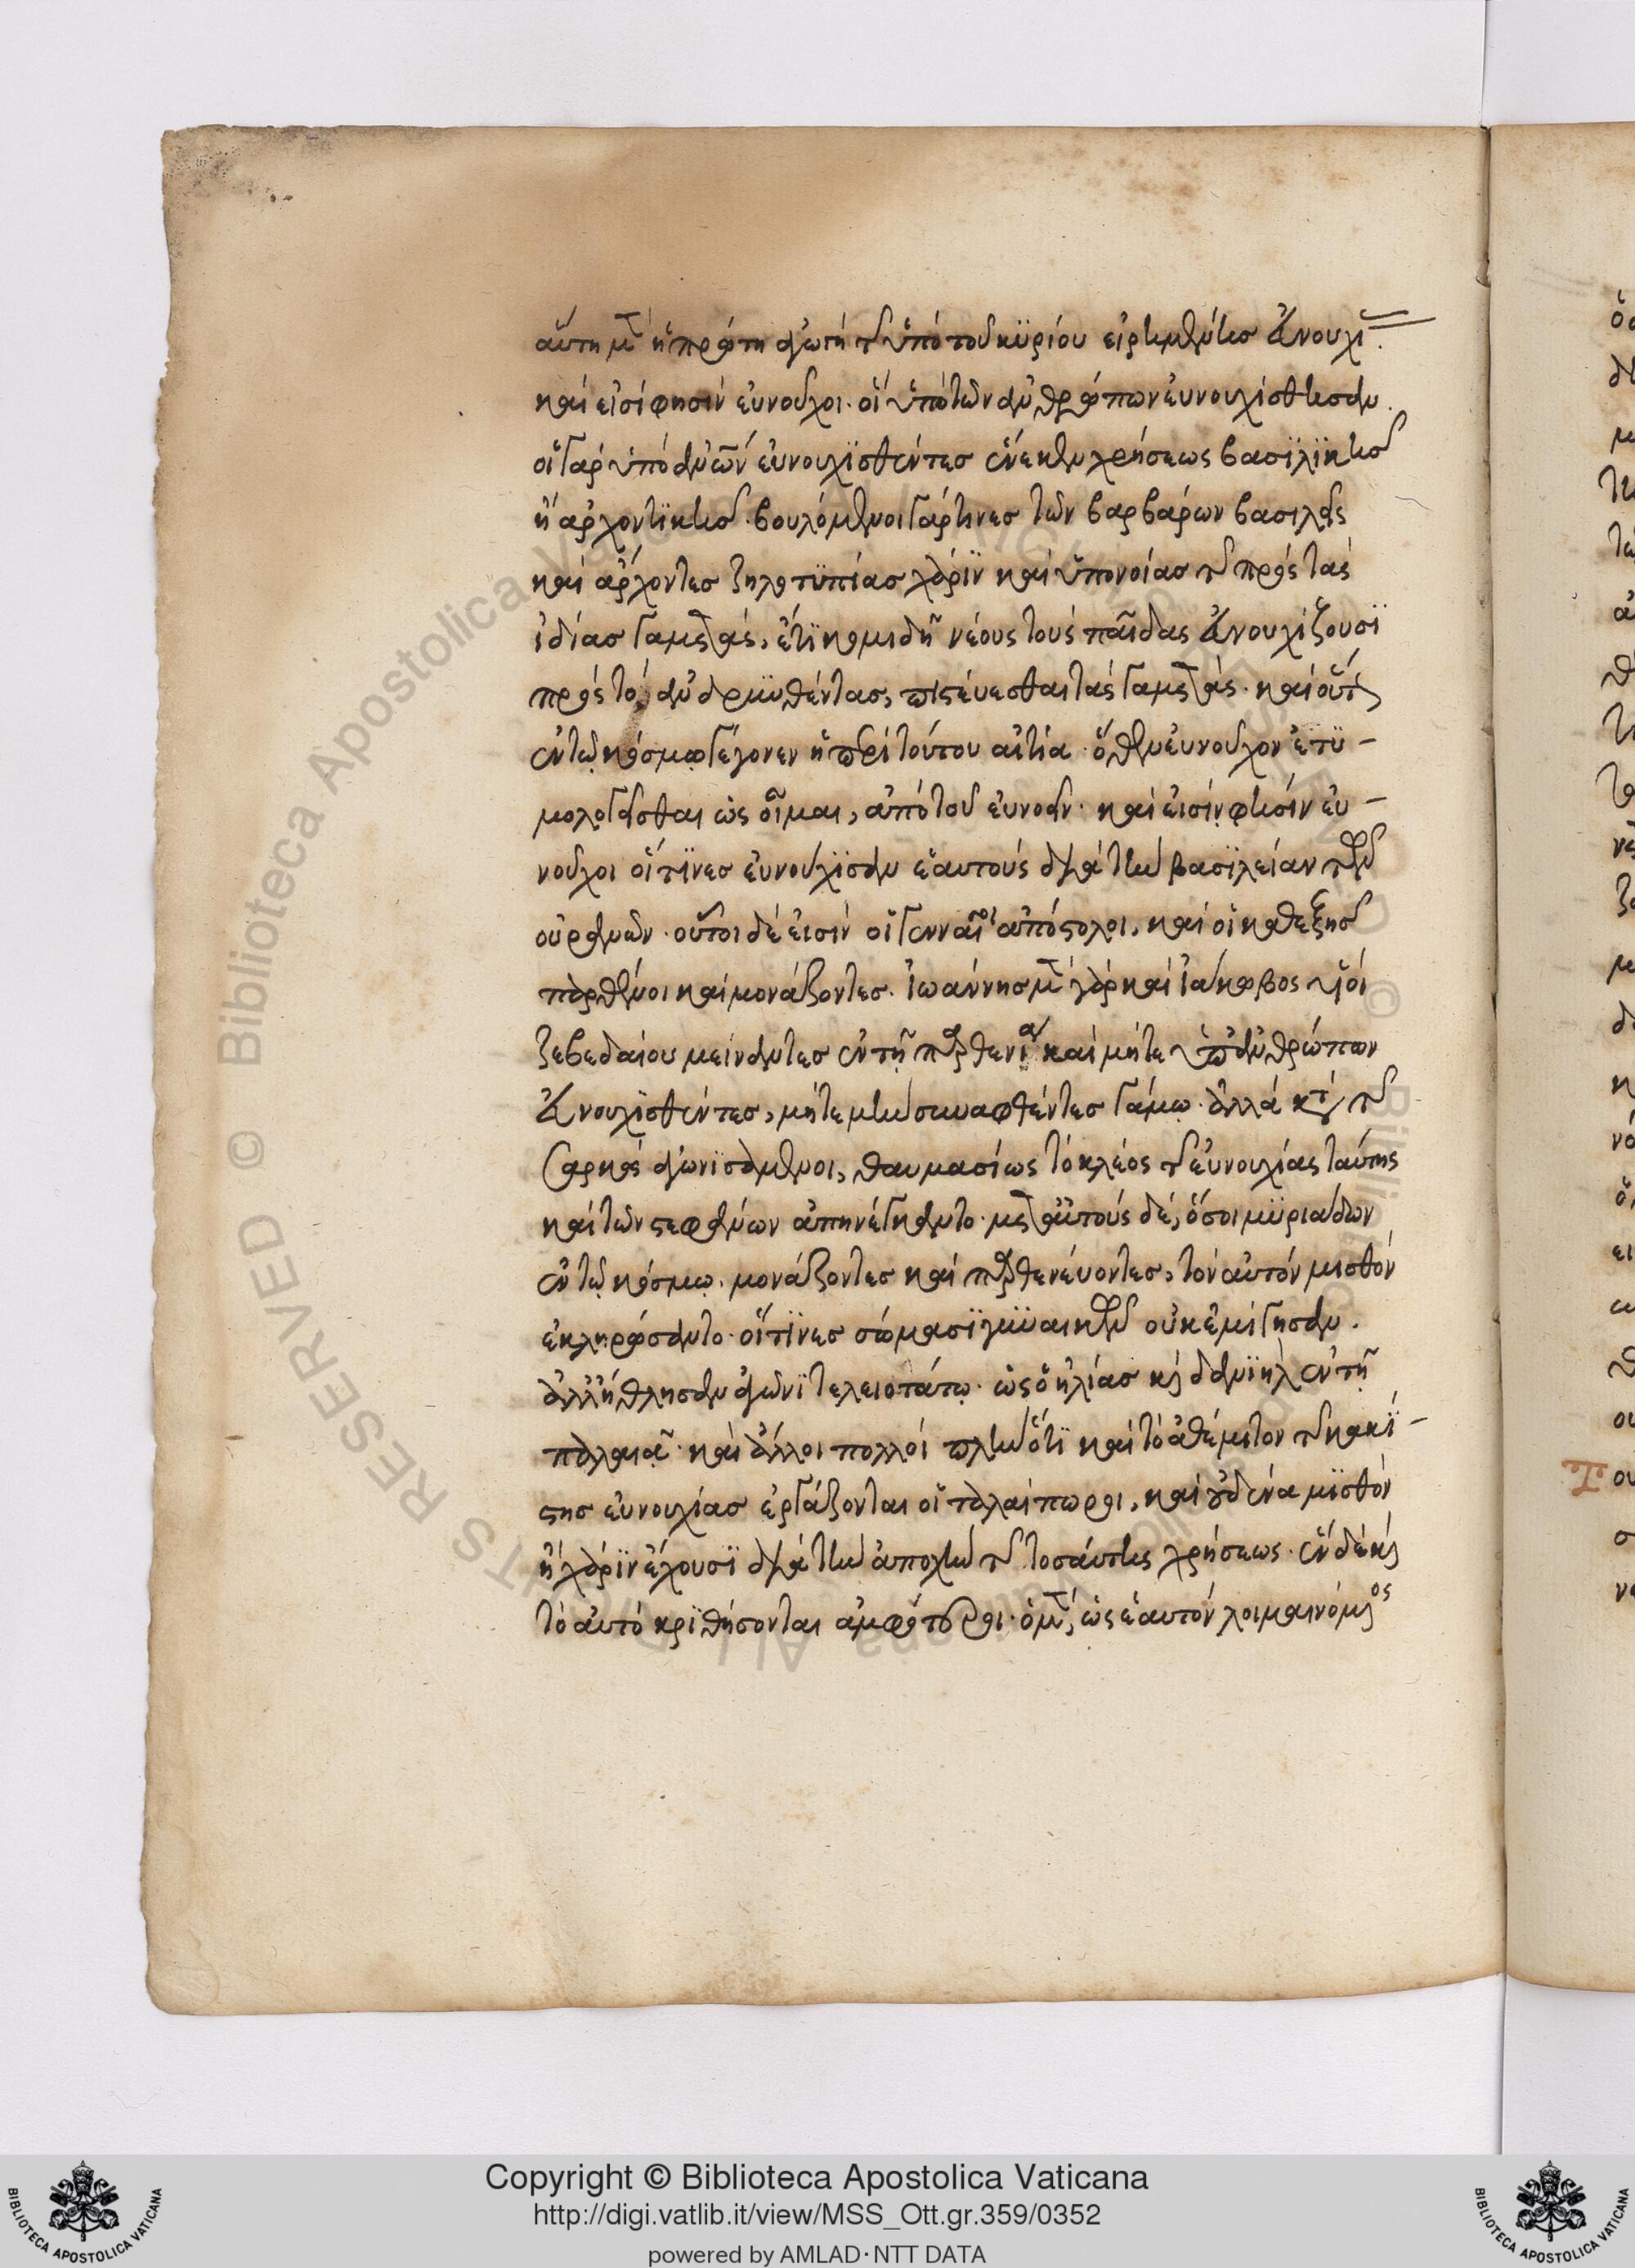 αὕτη μὲν ἡ πρώτη αὐτὴ τῆς ὑπὸ τοῦ κυρίου εἰρημένης εὐνουχί
καὶ εἰσί φησιν εὐνοῦχοι· οἳ ὑπὸ τῶν ἀνθρώπων εὐνουχίσθησαν.
οἱ γὰρ ὑπὸ ἀνῶν εὐνουχϊσθέντες ἕνεκεν χρήσεως βασϊλϊκῆς
ἢ ἀρχοντϊκῆς· βουλόμενοι γάρ τινες τῶν βαρβάρων βασιλεῖς
καὶ ἄρχοντες ζηλοτϋπίας χάρϊν καὶ ὑπονοίας τῆς πρὸς τὰς
ἰδίας γαμετάς, ἔτϊ κομιδῇ νέους τοὺς παῖδας εὐνουχίζουσϊ
πρὸς τὸ, ἀνδρϋνθέντας, πιστεύεσθαι τὰς γαμετάς· καὶ οὕτως
ἐν τῷ κόσμῳ γέγονεν ἡ περὶ τούτου αἰτία· ὅθεν εὐνοῦχον ἐτϋ-
μολογεῖσθαι ὡς οἶμαι, ἀπὸ τοῦ εὐνοεῖν· καὶ εἰσὶν φησὶν εὐ-
νοῦχοι οἵτϊνες εὐνούχϊσαν ἑαυτοὺς διὰ τὴν βασϊλείαν τῶν
οὐρανῶν· οὗτοι δὲ εἰσὶν οἱ γενναῖοι ἀπόστολοι, καὶ οἱ καθεξῆς
παρθένοι καὶ μονάζοντες. Ἰωάννης μὲν γὰρ καὶ Ἰάκωβος υἱοὶ
ζεβεδαίου μείναντες ἐν τῇ παρθενία καὶ μήτε ὑπὸ ἀνθρώπων
εὐνουχϊσθέντες, μήτε μὴν συναφθέντες γάμῳ· ἀλλὰ κατὰ τῆς
σαρκὸς ἀγωνϊσάμενοι, θαυμασίως τὸ κλέος τῆς εὐνουχίας ταύτης
καὶ τῶν στεφάνων ἀπηνέγκαντο· μετ' αὐτοὺς δὲ, ὅσοι μϋριάδων
ἐν τῷ κόσμῳ. μονάζοντες καὶ παρθενεύοντες, τὸν αὐτὸν μισθὸν
ἐκληρώσαντο· οἵτϊνες σώμασϊ γυναικῶν οὐκ ἐμίγησαν.
ἀλλ' ἤθλησαν ἀγῶνϊ τελειοτάτῳ· ὡς ὁ ἠλίας καὶ δανϊὴλ ἐν τῇ
παλαιᾷ· καὶ ἄλλοι πολλοὶ πλὴν ὅτϊ καὶ τὸ ἀθέμιτον τῆς κακί-
στης εὐνουχίας ἐργάζονται οἱ ταλαίπωροι, καὶ οὐδένα μϊσθὸν
ἢ χάρϊν ἔχουσϊ διὰ τὴν ἀποχὴν τῆς τοσαύτης χρήσεως· ἓν δὲ καὶ
τὸ αὐτὸ κρϊθήσονται ἀμφότεροι· ὁ μὲν, ὡς ἑαυτὸν λοιμαινόμενος
Copyright © Biblioteca Apostolica Vaticana
http://digi.vatlib.it/view/MSS_Ott.gr.359/0352
powered by AMLAD·NTT DATA